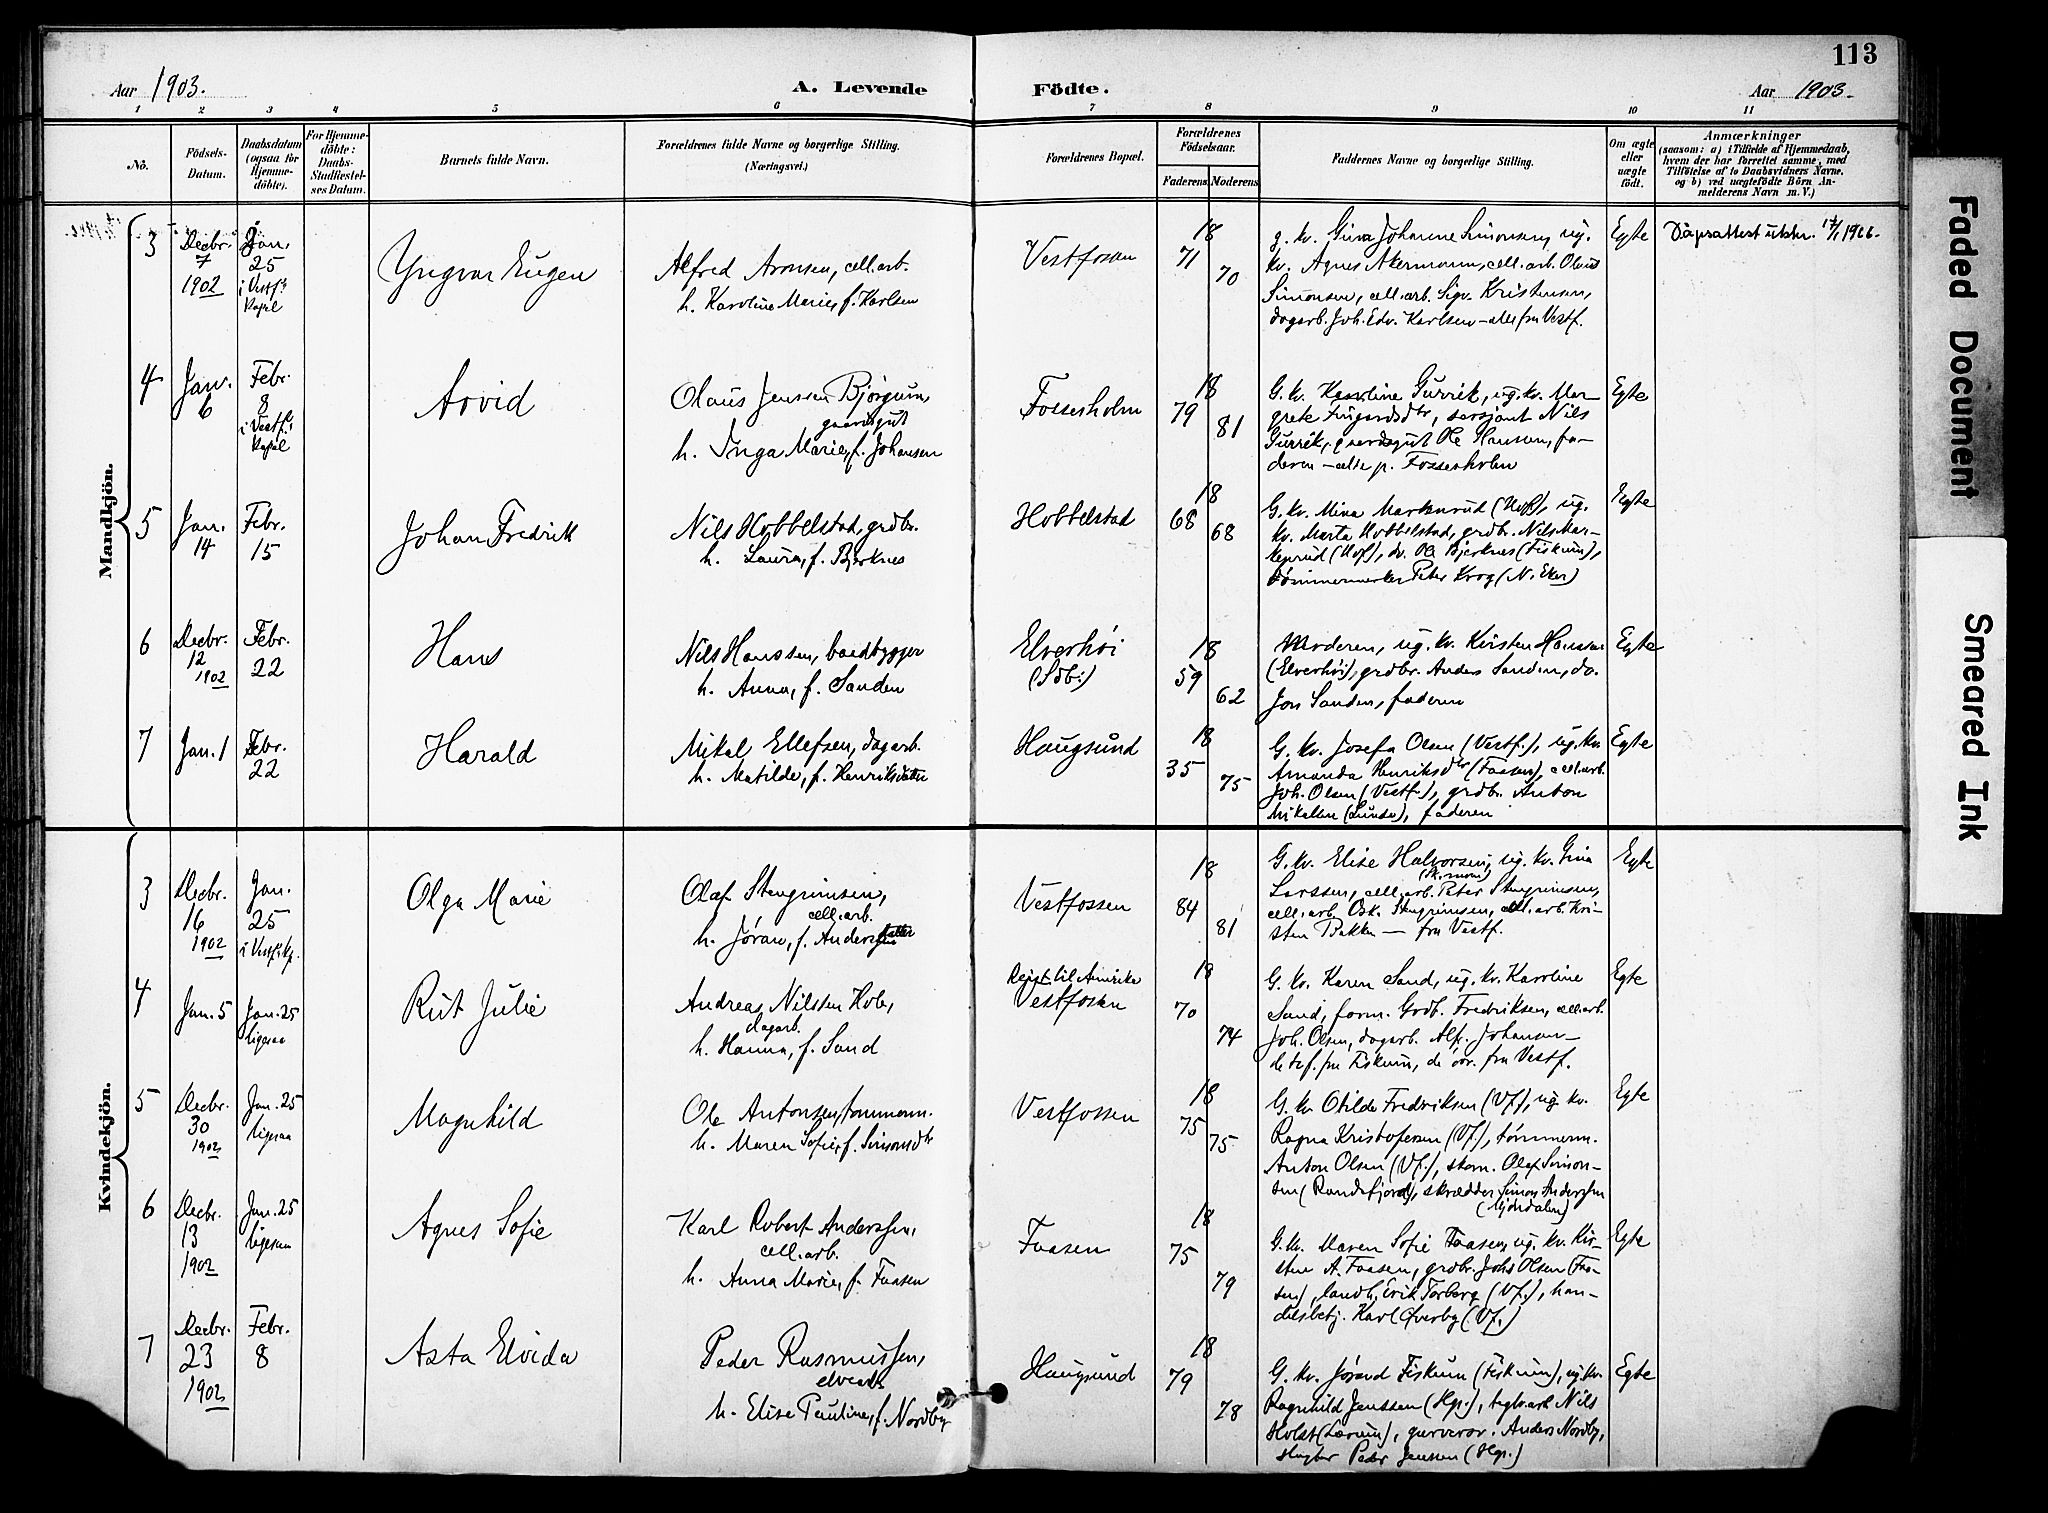 113
Aar 1903.
A. Levende Födte.
Aar 1903.
1 2 3 4 5 6 7 8 9 10 11
No.
Födsels-
Datum.
Daabsdatum
(ogsaa for
Hjemme-
döbte).
For Hjemme-
döbte:
Daabs-
Stadfæstel-
ses Datum.
Barnets fulde Navn.
Forældrenes fulde Navne og borgerlige Stilling.
(Næringsvei.)
Forældrenes Bopæl.
Forældrenes
Födselsaar.
Faderens
Moderens
Faddernes Navne og borgerlige Stilling.
Om ægte
eller
uægte
födt.
Anmærkninger
(saasom: a) i Tilfælde af Hjemmedaab,
hvem der har forrettet samme, med
Tilföielse af to Daabsvidners Navne,
og b) ved uægtefödte Börn An-
melderens Navn m. V.)
Mandkjön.
3
Decbr.
7
1902
Jan.
25
i Vestf.
kapel
Yngvar Eugen
Alfred Aronsen, cell. arb.
h. Karoline Marie, f. Karlsen
Vestfossen
18
71
70
g. kv. Gina Johanne Simonsen, ug.
kv. Agnes Akermann, cell. arb. Olaus
Simonsen, cell. arb. Sigv. Kristensen,
dagarb. Joh. Edv. Karlsen – alle fra Vestf.
Egte
Dåpsattest utstr. 17/1 1966.
4
Jan.
6
Febr.
8
i Vestf.
kapel
Arvid
Olaus Jensen Bjørgum
gaardsgut
h. Inga Marie, f. Johansen
Fossesholm
18
79
81
G. kv. Karoline Gurrik, ug. kv. Mar-
grete Fingarsdtr, sersjant Nils
Gurrik, gaardsgut Ole Hansen, fa-
deren – alle p. Fossesholm
Egte
5
Jan.
14
Febr.
15
Johan Fredrik
Nils Hobbelstad, grdbr.
h. Laura, f. Bjerknes
Hobbelstad
18
68
68
G. kv. Mina Markenrud (Hof), ug.
kv. Marta Hobbelstad, grdbr. Nils Mar-
kenrud (Hof), do. Ole Bjerknes (Fiskum),
tømmermerker Peter Krog (N. Eker)
Egte
6
Decbr.
12
1902
Febr.
22
Hans
Nils Hanssen, baadbygger
h. Anna, f. Sanden
Elverhøi
(Sdb.)
18
59
62
Moderen, ug. kv. Kirsten Hanssen
(Elverhøi), grdbr. Anders Sanden, do.
Jon Sanden, faderen
Egte
7
Jan. 1
Febr.
22
Harald
Mikal Ellefsen, dagarb.
h. Matilde, f. Henriksdatter
Haugsund
18
35
75
G. kv. Josefa Olsen (Vestf.), ug. kv.
Amanda Henriksdtr (Faasen), cell. arb.
Joh. Olsen (Vestf.), grdbr. Anton
Mikalsen (Lunde), faderen
Egte
Kvindekjön.
3
Decbr.
16
1902
Jan.
25
i Vestf. kp.
Olga Marie
Olaf Stengrimsen,
cell. arb.
h. Jøran, f. Andersdatter
Vestfossen
18
84
81
G. kv. Elise Halvorsen, ug. kv. Gina
Larssen, cell. arb. Peter Stengrimsen,
cell. arb. Osk. Stengrimsen, cell. arb. Kri-
sten Bakken – fra Vestf.
Egte
4
Jan. 5
Jan. 25
ligesaa
Rut Julie
Andreas Nilssen Kob,
dagarb.
h. Hanna, f. Sand
Reist til Amerika
Vestfossen
18
70
74
G. kv. Karen Sand, ug. kv. Karoline
Sand, form. Gudb. Fredriksen, cell. arb.
Joh. Olsen, dagarb. Alf. Johansen –
de to f. fra Fiskum, de øvr. fra Vestf.
Egte
5
Decbr.
30
1902
Jan. 25
ligesaa
Magnhild
Ole Antonsen, tømmerm.
h. Maren Sofie, f. Simonsdtr
Vestfossen
18
75
75
G. kv. Otilde Fredriksen (Vf.), ug. kv.
Ragna Kristofersen (Vf.), tømmerm.
Anton Olsen (Vf.), skom. Olaf Simon-
sen (Randsfjord), skrædder Simon Anderssen
(Mjøndalen)
Egte
6
Decbr.
13
1902
Jan. 25
ligesaa
Agnes Sofie
Karl Robert Anderssen,
cell. arb.
h. Anna Marie, f. Faasen
Faasen
18
75
79
G. kv. Maren Sofie Faasen, ug. kv. Kir-
stine A. Faasen, grdbr. Johs Olsen (Faa-
sen), landh. Erik Torberg (Vf.), han-
delsbetj. Karl Øverby (Vf.)
Egte
7
Decbr.
23
1902
Febr.
8
Asta Elvida
Peder Rasmussen,
elvearb.
h. Elise Pauline, f. Nordby
Haugsund
18
79
78
G. kv. Jørand Fiskum (Fiskum), ug. kv.
Ragnhild Jenssen (Hgs.), teglv. arb. Nils
Holst (Lærum), garversv. Anders Nordby,
Peder Jenssen (Hgs.)
Egte
Faded Document
Smeared Ink